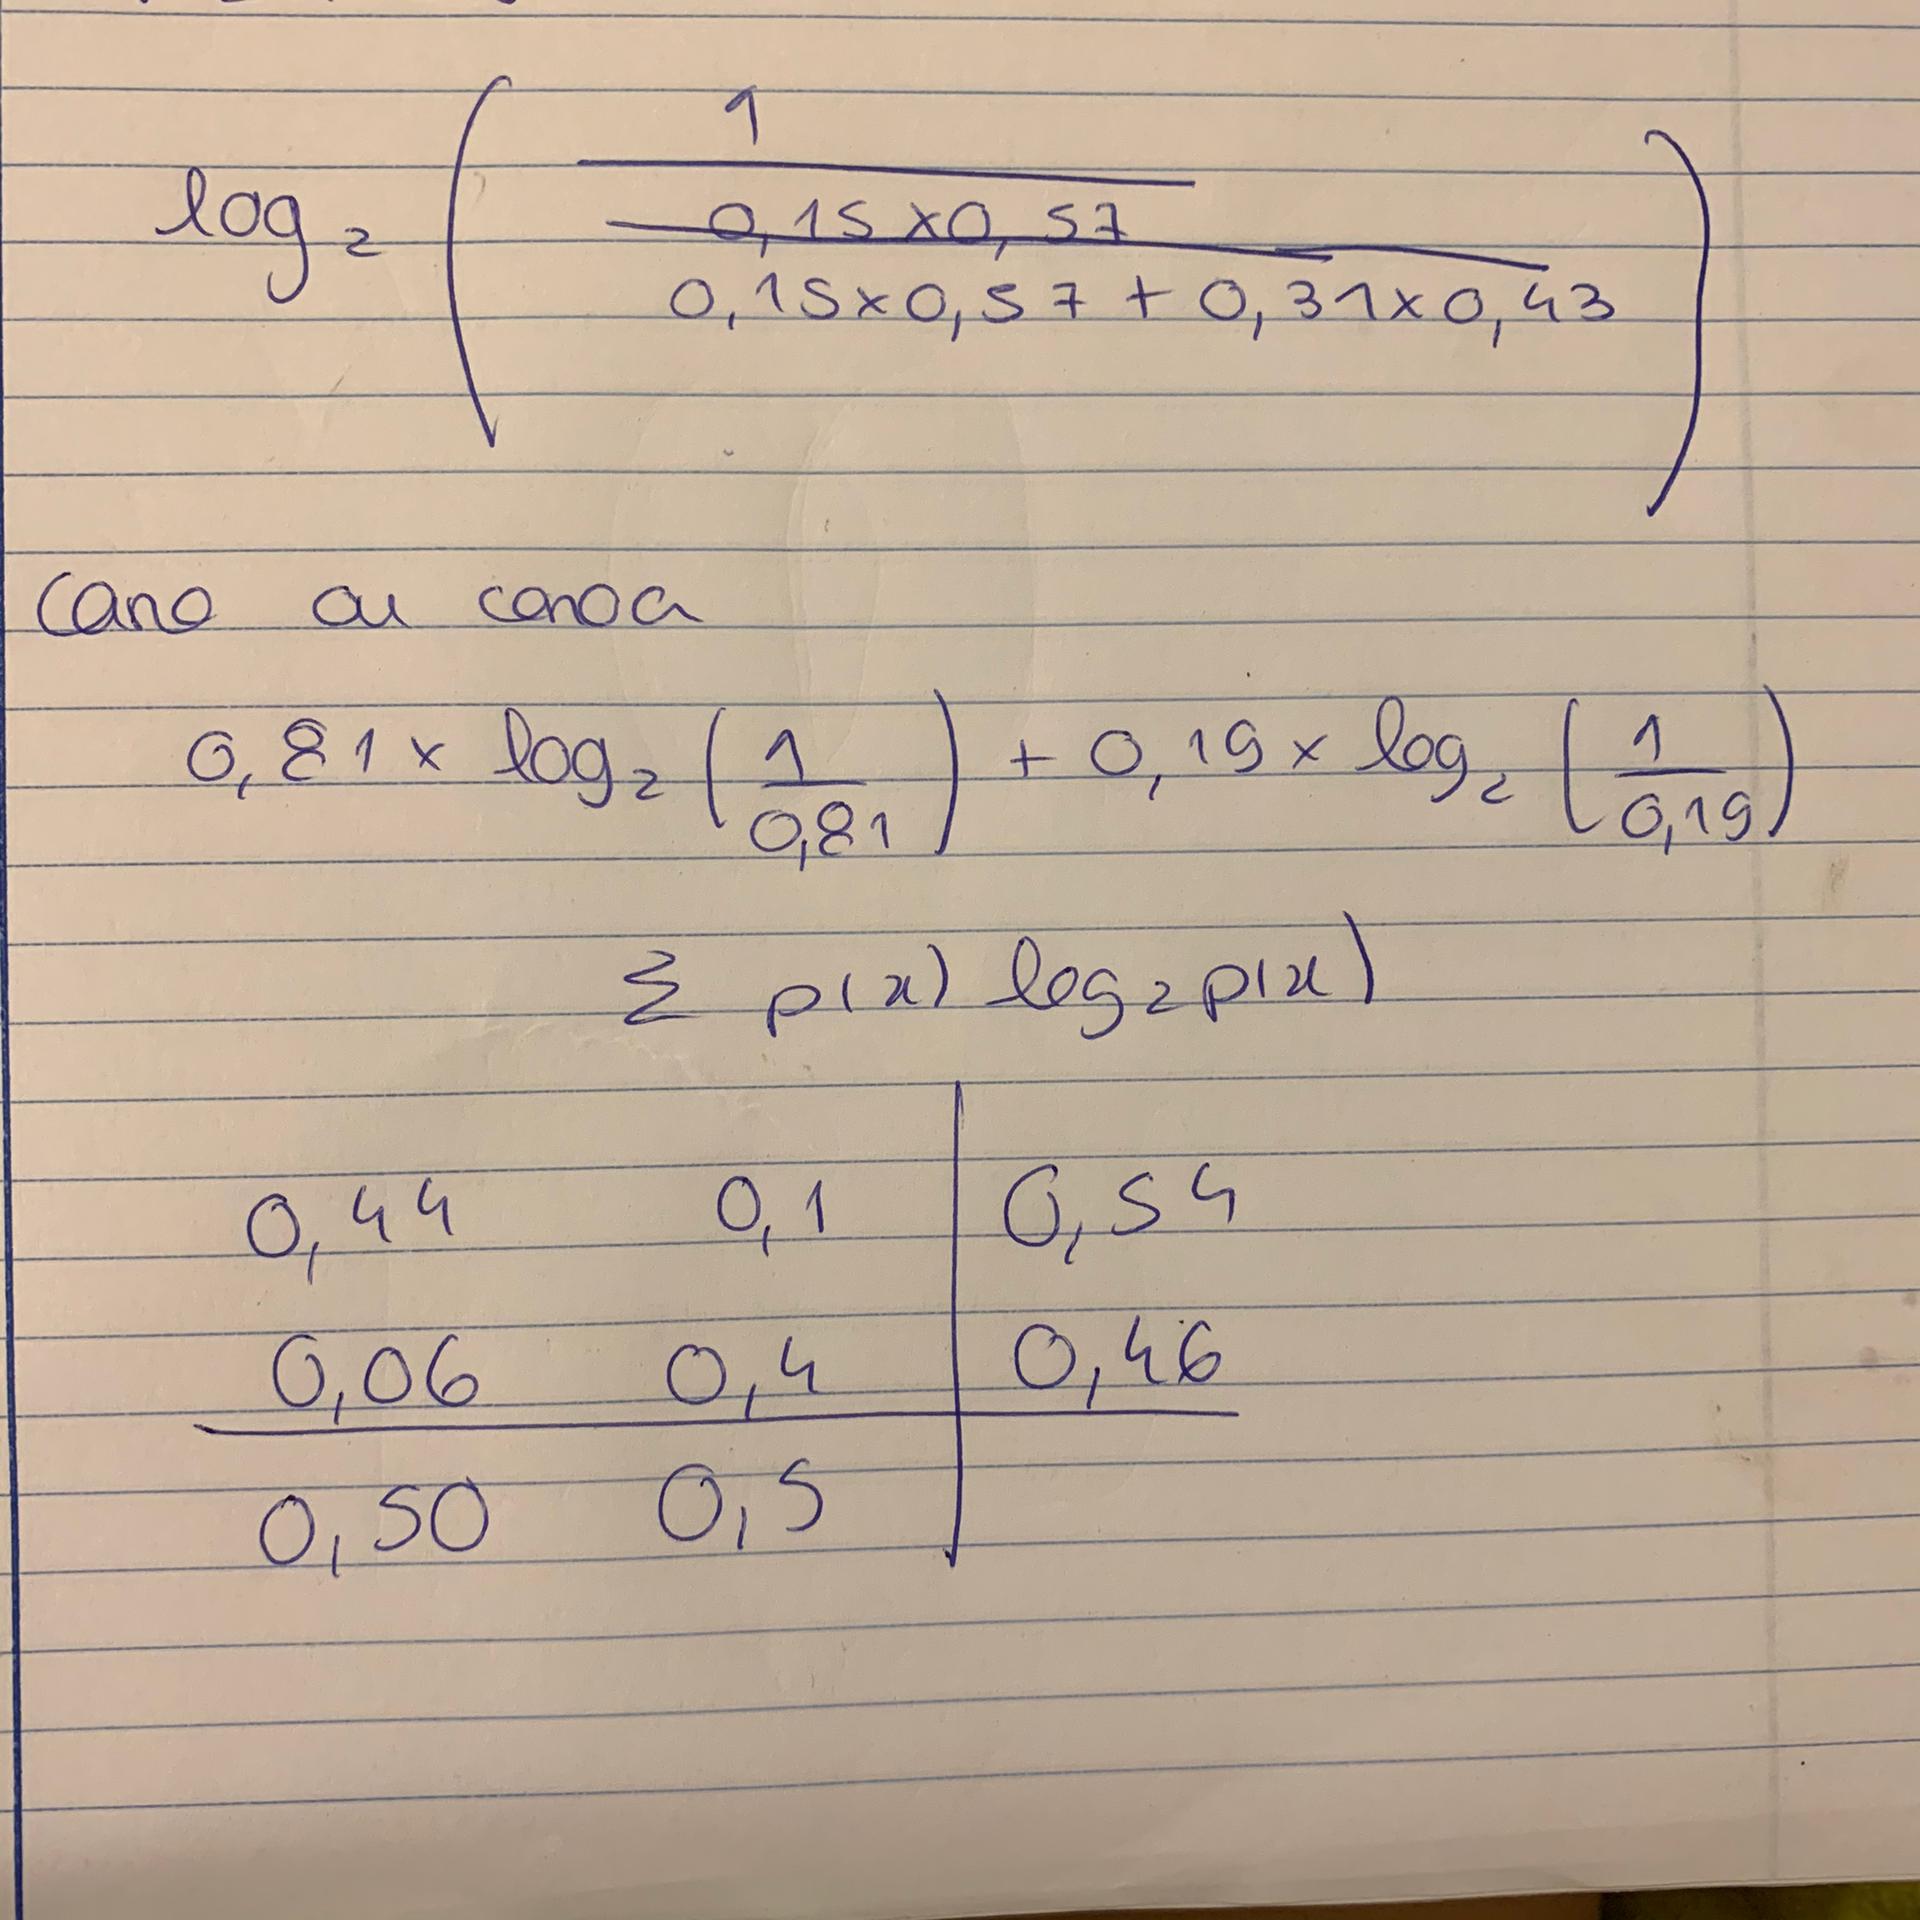 1
log₂ ( 0,15 x 0,57 )
0,15 x 0,57 + 0,31 x 0,43
cano ou canoa
0,81 x log₂ (1/0,81) + 0,19 x log₂ (1/0,19)
Σ p(x) log₂ p(x)
0,44 0,1 0,54
0,06 0,4 0,46
0,50 0,5